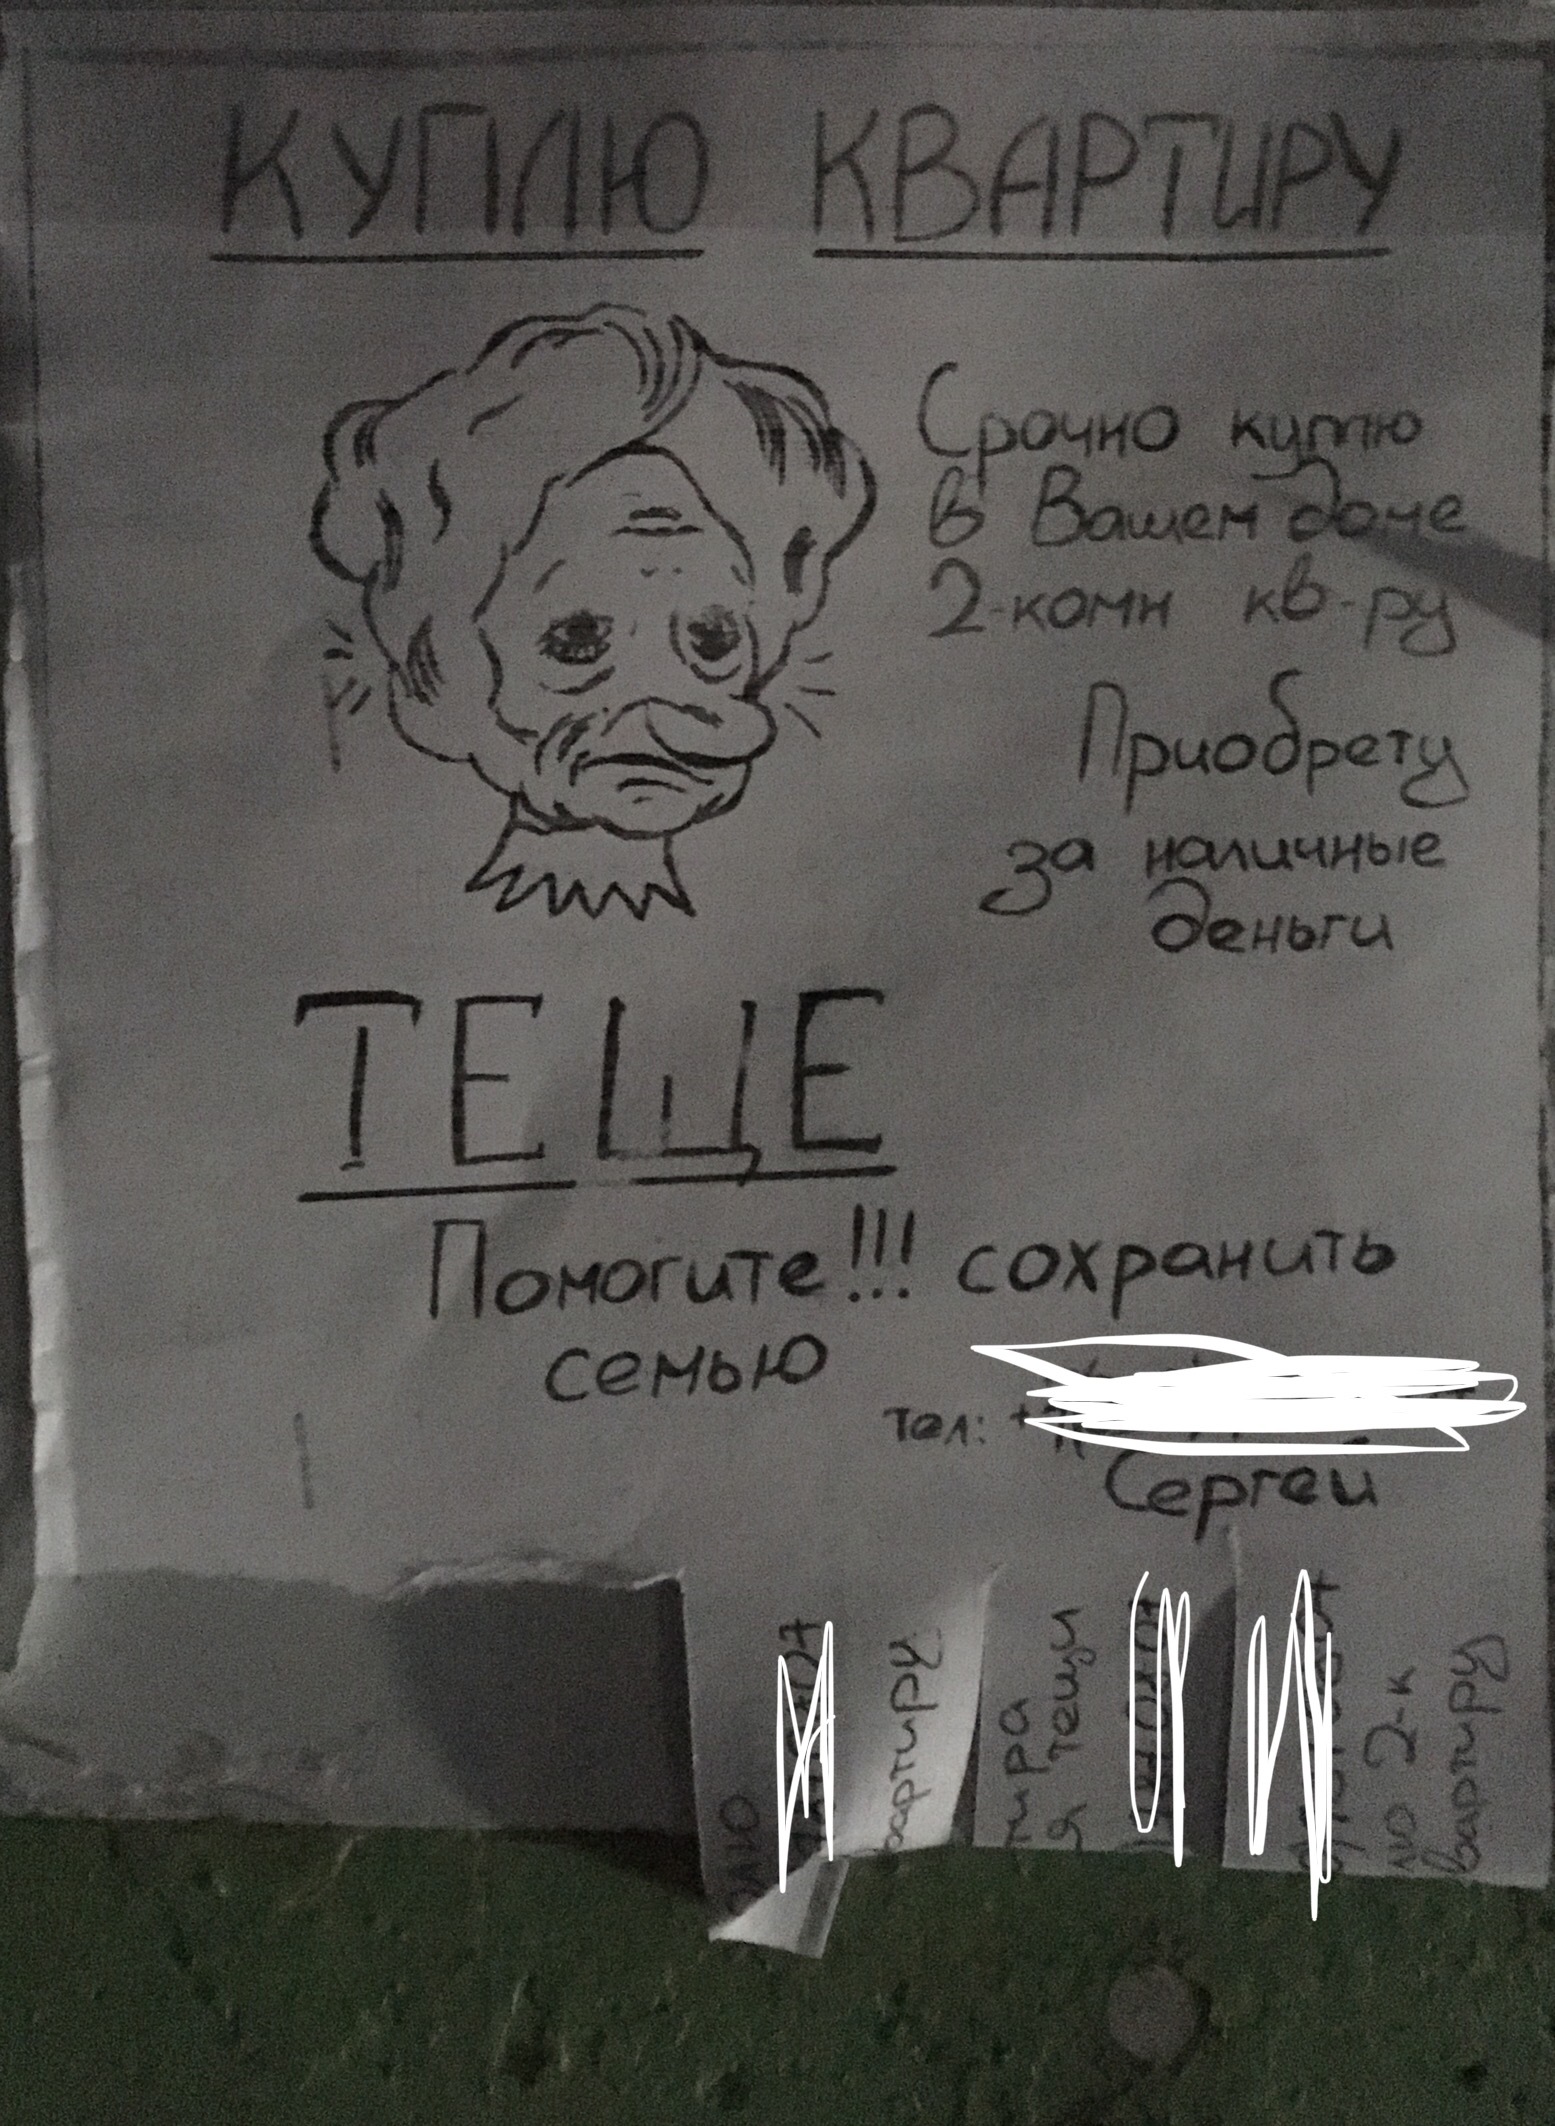 КУПЛЮ КВАРТИРУ
Срочно куплю
в Вашем доме
2-комн кв-ру
Приобрету
за наличные
деньги
ТЕЩЕ
Помогите!!! сохранить
семью
тел:
Сергей
вартиру
тира
я тещи
лю 2-к
вартиру